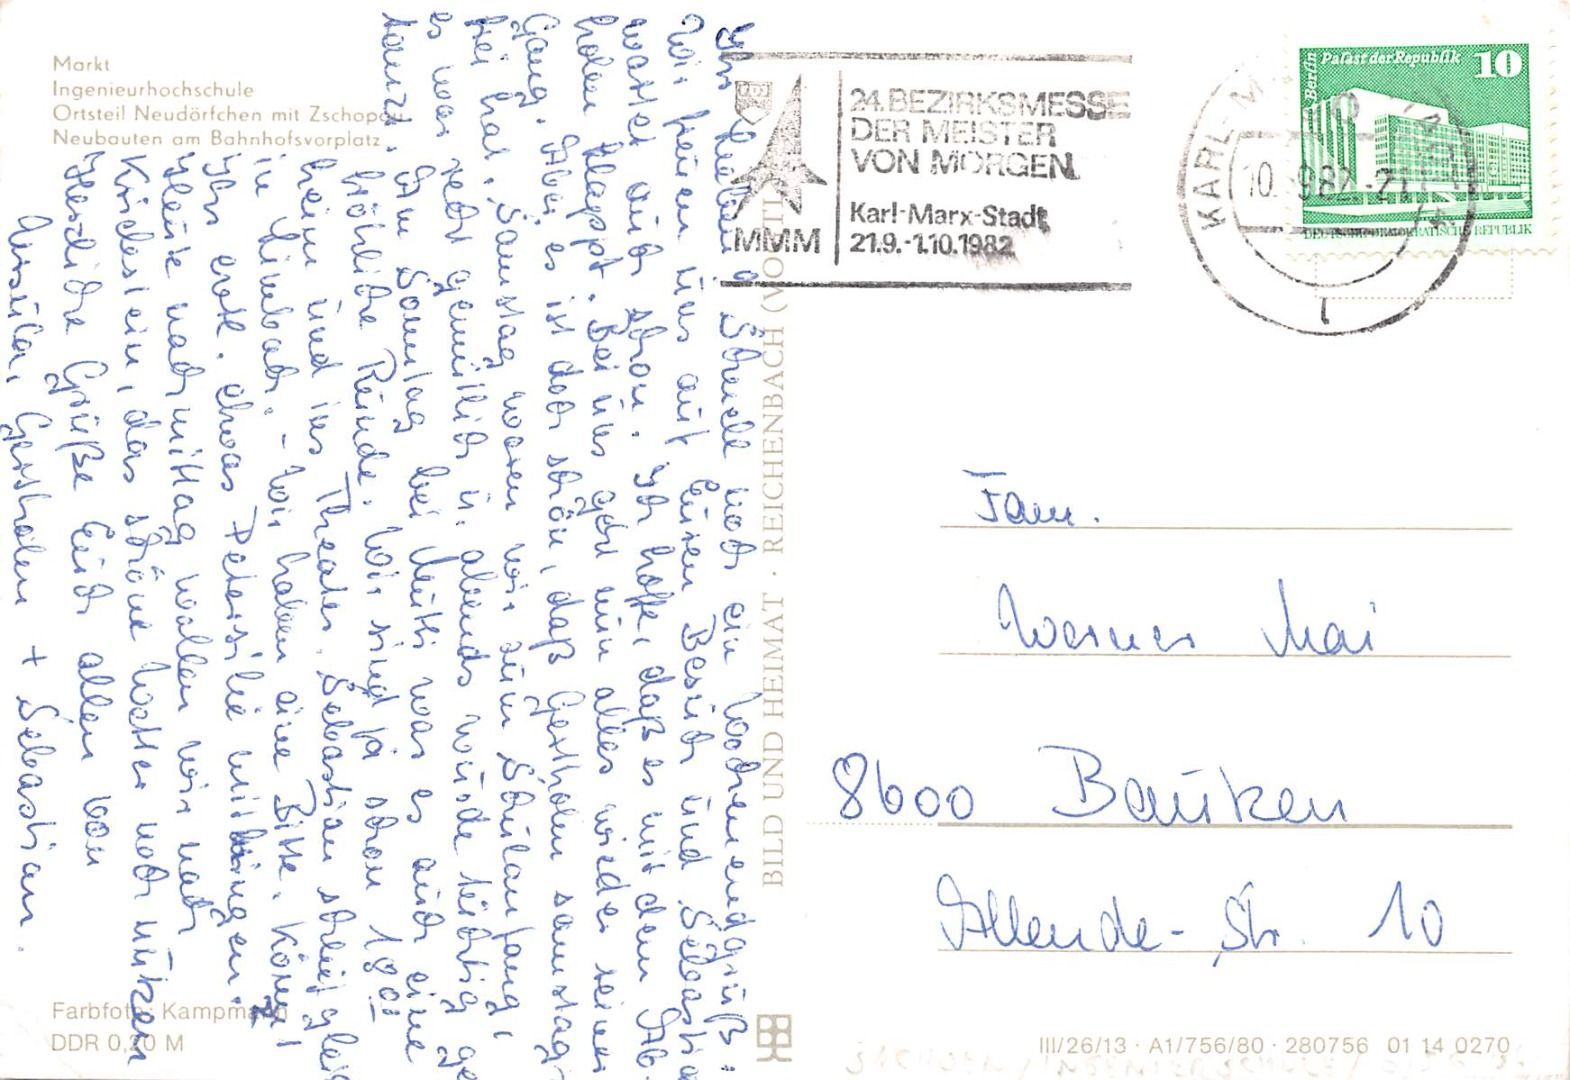 Markt
Ingenieurhochschule
Ortsteil Neudörfchen mit Zschopau
Neubauten am Bahnhofsvorplatz
Ihr Lieben! Schnell noch ein Wochenendgruß.
Wir freuen uns auf Euren Besuch und Sebastian
wartet auch schon. Ich hoffe, daß es mit dem Ab-
holen klappt. Bei uns geht nun alles wieder seinen
Gang. Aber es ist doch schön, daß Gertholen samstag
frei hat. Samstag waren wir zum Schulanfang,
es war sehr gemütlich u. abends wurde tüchtig ge-
tanzt. Am Sonntag bei Mutti war es auch eine
fröhliche Runde. Wir sind ja schon 18 00
heim und ins Theater. Sebastian schlief gleich
in Limbach. - Wir haben eine Bitte. Könnt
Ihr evtl. etwas Petersilie mitbringen.
Heute nachmittag wollen wir nach
Kriebstein, das schöne Wetter noch nutzen
Herzliche Grüße Euch allen von
Ursula, Gertholen + Sebastian.
Farbfoto: Kampmann
DDR 0,20 M
BILD UND HEIMAT · REICHENBACH (VOGTL)
MMM
24. BEZIRKSMESSE
DER MEISTER
VON MORGEN
Karl-Marx-Stadt
21.9.-1.10.1982
KARL-M
10. 9.82.-21
Berlin Palast der Republik 10
DEUTSCHE DEMOKRATISCHE REPUBLIK
Fam.
Werner Mai
8600 Bautzen
Allende-Str. 10
III/26/13 · A1/756/80 · 280756 01 14 0270